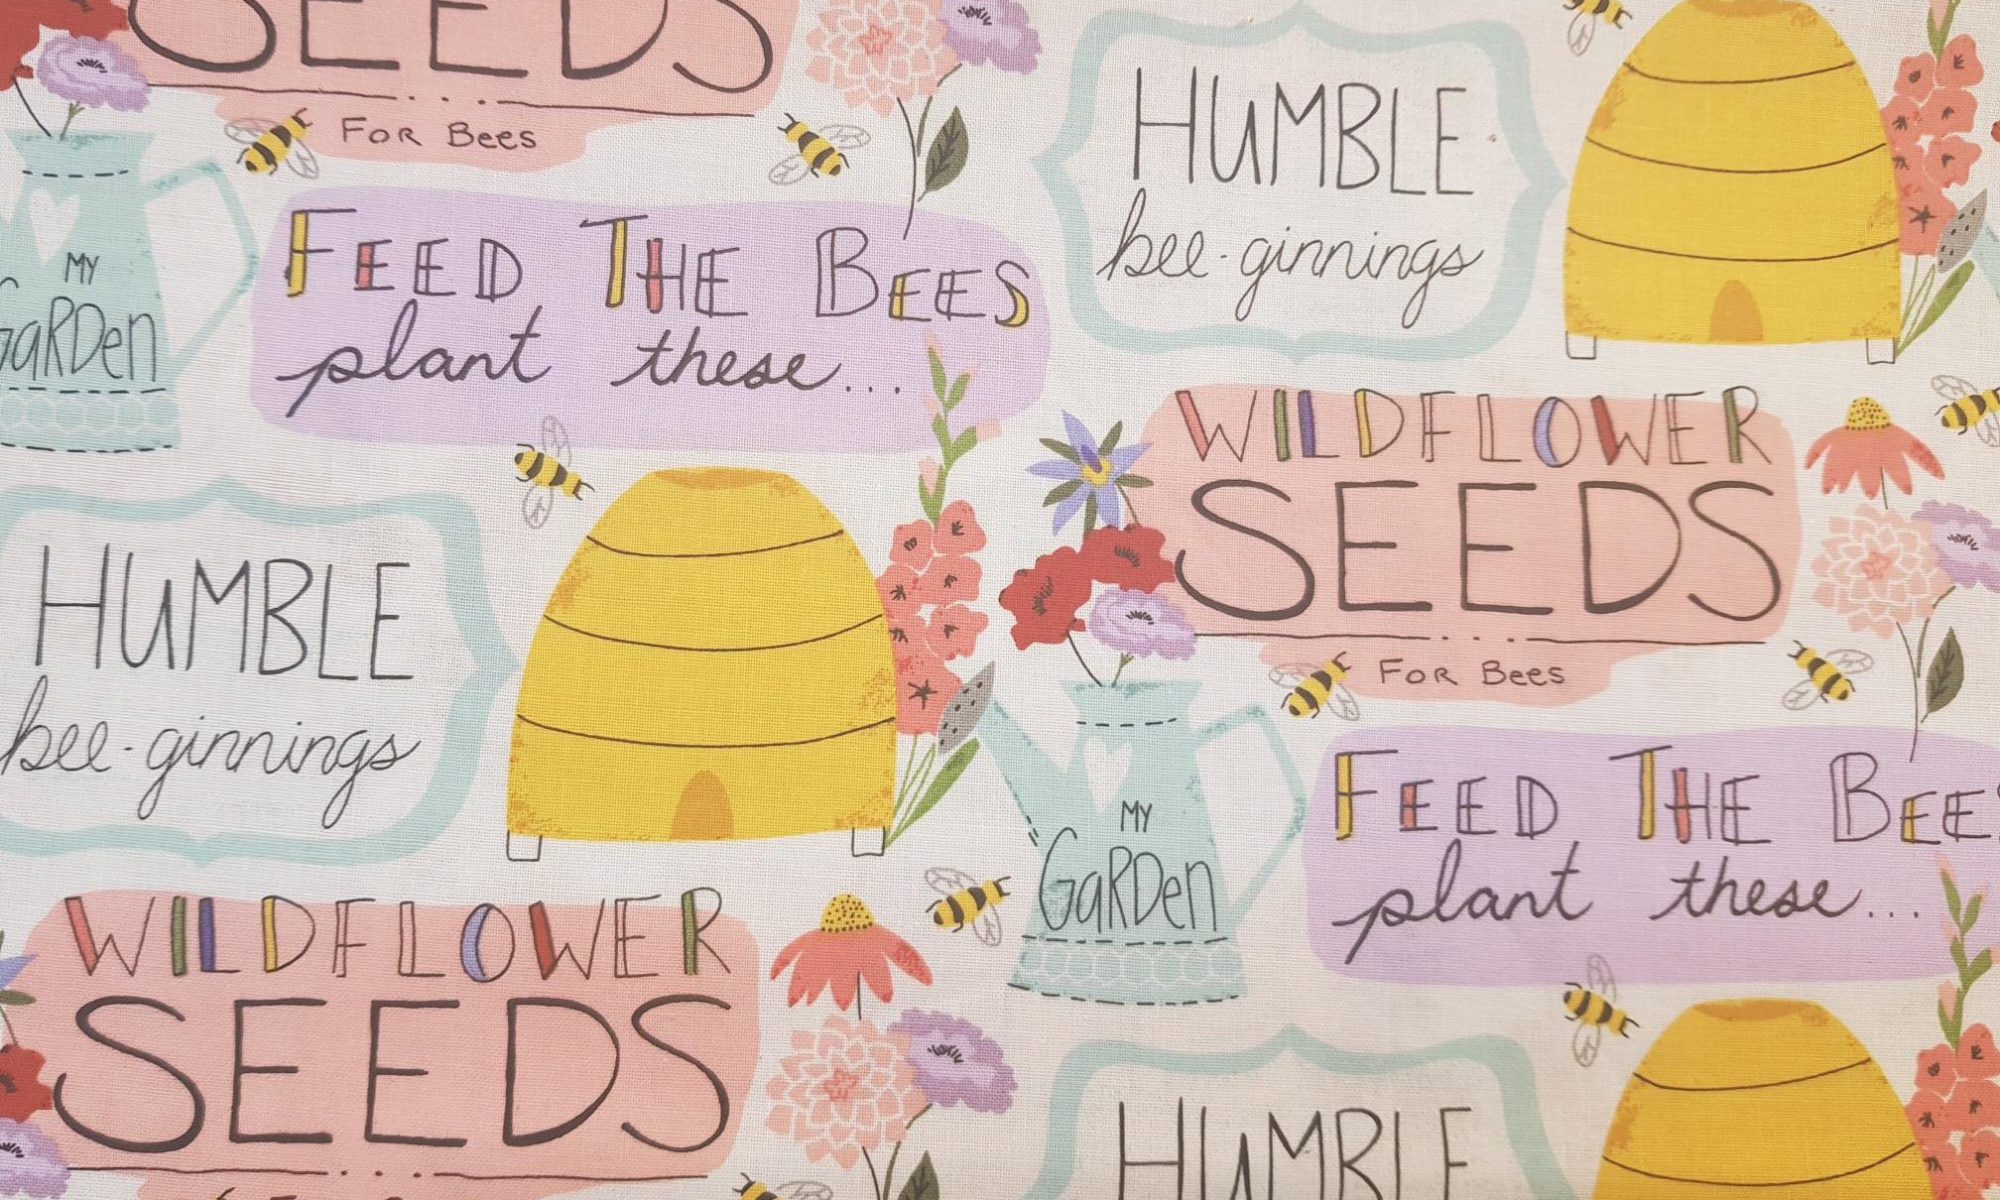 SEEDS
For Bees
HUMBLE
bee-ginnings
MY
GaRDen
FEED THE BEES
plant these...
WILDFLOWER
SEEDS
For Bees
HUMBLE
bee-ginnings
MY
GaRDen
FEED THE BEES
plant these...
WILDFLOWER
SEEDS
HUMBLE